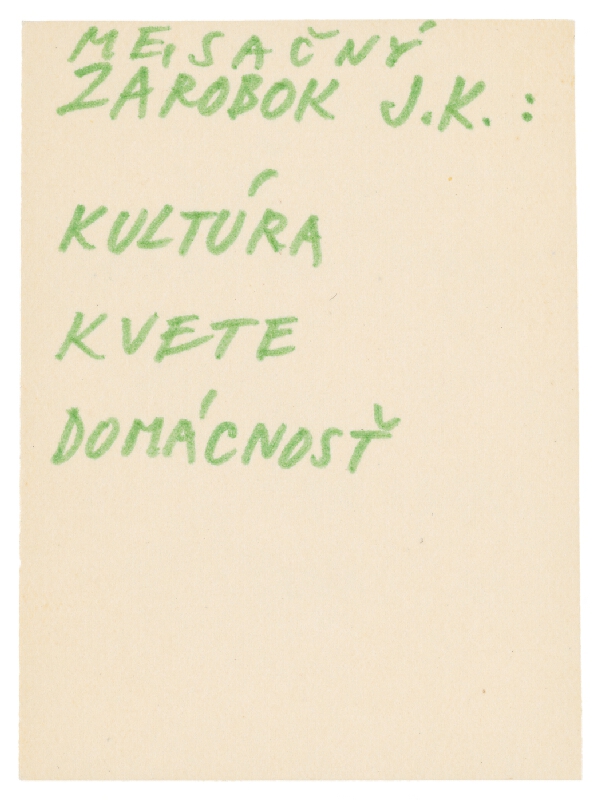 MEsSAČNÝ
ZAROBOK J.K. :
KULTÚRA
KVETE
DOMÁCNOSŤ